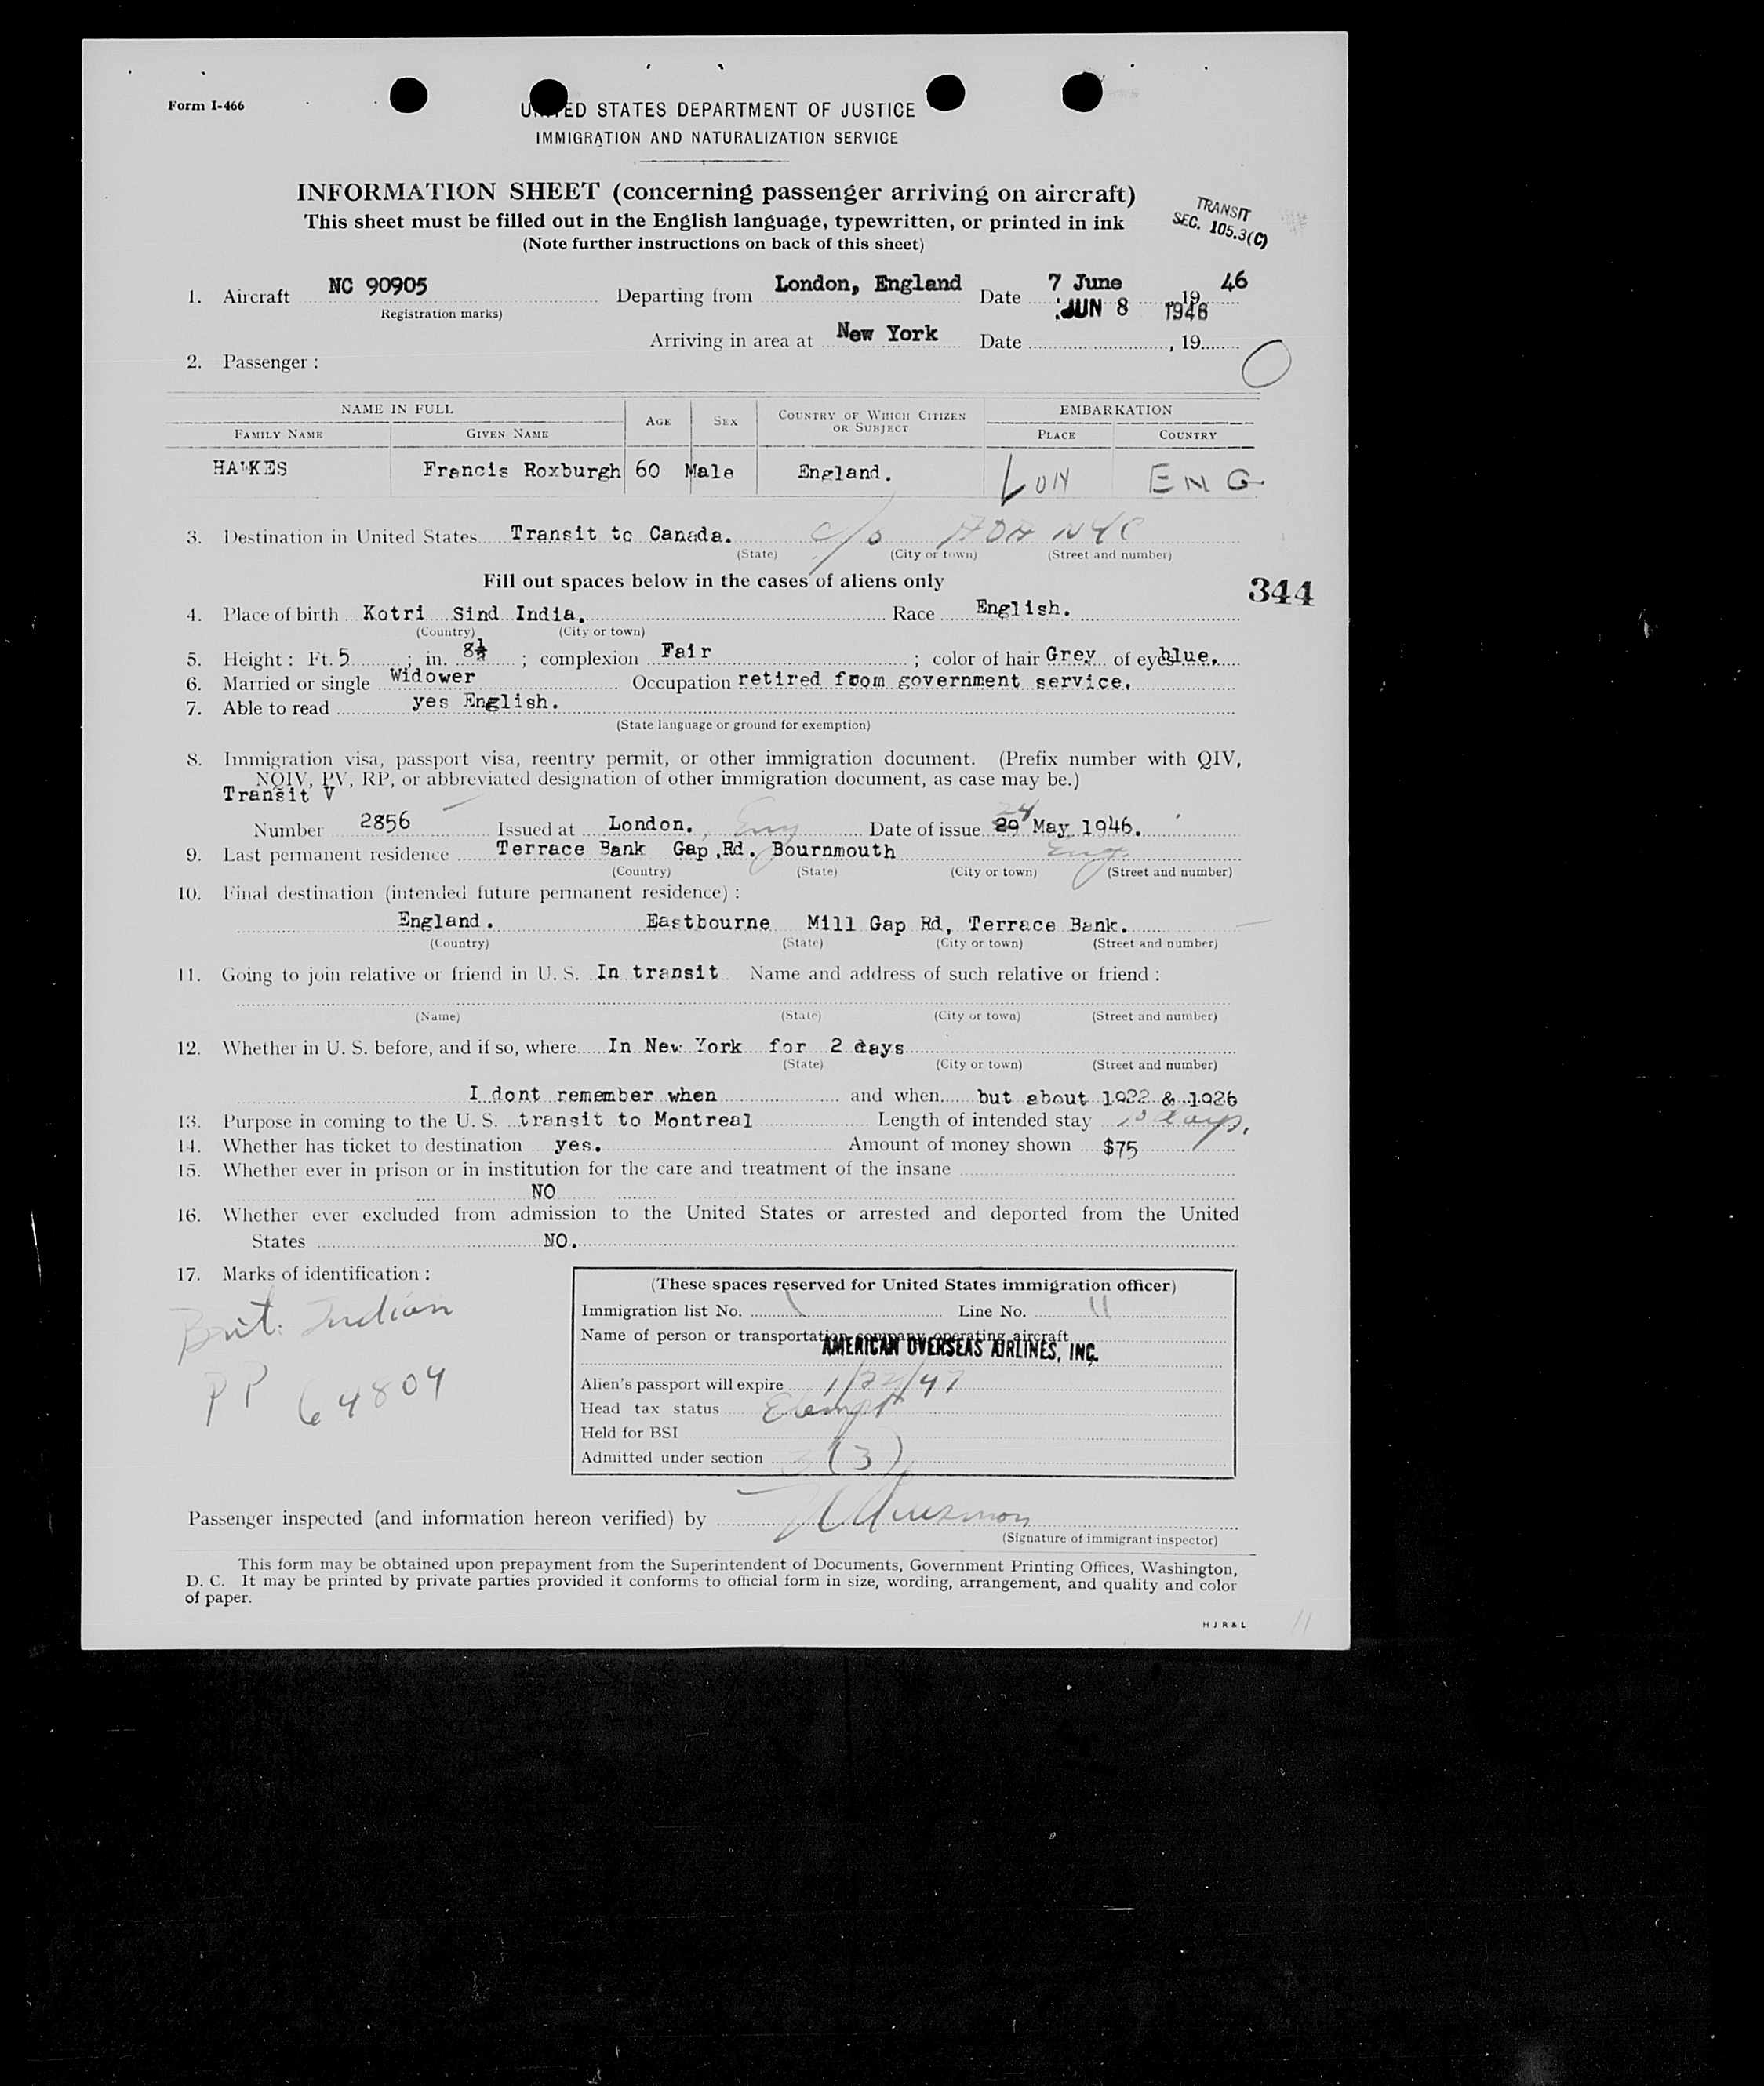 Form I-466
UNITED STATES DEPARTMENT OF JUSTICE
IMMIGRATION AND NATURALIZATION SERVICE
INFORMATION SHEET (concerning passenger arriving on aircraft)
This sheet must be filled out in the English language, typewritten, or printed in ink
(Note further instructions on back of this sheet)
TRANSIT
SEC. 105.3(C)
1. Aircraft NC 90905 Departing from London, England Date 7 June 1946
Registration marks)
JUN 8 1946
Arriving in area at New York Date , 19
2. Passenger :
NAME IN FULL AGE SEX COUNTRY OF WHICH CITIZEN OR SUBJECT EMBARKATION
FAMILY NAME GIVEN NAME PLACE COUNTRY
HAWKES Francis Roxburgh 60 Male England. LON ENG
3. Destination in United States Transit to Canada. c/o AOA NYC
(State) (City or town) (Street and number)
Fill out spaces below in the cases of aliens only
344
4. Place of birth Kotri Sind India. Race English.
(Country) (City or town)
5. Height : Ft. 5 ; in. 8½ ; complexion Fair ; color of hair Grey of eyes blue.
6. Married or single Widower Occupation retired from government service.
7. Able to read yes English.
(State language or ground for exemption)
8. Immigration visa, passport visa, reentry permit, or other immigration document. (Prefix number with QIV,
NQIV, PV, RP, or abbreviated designation of other immigration document, as case may be.)
Transit V
Number 2856 Issued at London. Eng Date of issue 29 24 May 1946.
9. Last permanent residence Terrace Bank Gap ,Rd. Bournmouth Eng.
(Country) (State) (City or town) (Street and number)
10. Final destination (intended future permanent residence) :
England. Eastbourne Mill Gap Rd, Terrace Bank.
(Country) (State) (City or town) (Street and number)
11. Going to join relative or friend in U. S. In transit Name and address of such relative or friend :
(Name) (State) (City or town) (Street and number)
12. Whether in U. S. before, and if so, where In New York for 2 days
(State) (City or town) (Street and number)
I dont remember when and when but about 1922 & 1926
13. Purpose in coming to the U. S. transit to Montreal Length of intended stay days.
14. Whether has ticket to destination yes. Amount of money shown $75
15. Whether ever in prison or in institution for the care and treatment of the insane
NO
16. Whether ever excluded from admission to the United States or arrested and deported from the United
States NO.
17. Marks of identification :
Brit. Indian
PP 64804
(These spaces reserved for United States immigration officer)
Immigration list No. 1 Line No. 11
Name of person or transportation company operating aircraft
AMERICAN OVERSEAS AIRLINES, INC.
Alien's passport will expire 1/22/47
Head tax status Exempt
Held for BSI
Admitted under section 3(3)
Passenger inspected (and information hereon verified) by
(Signature of immigrant inspector)
This form may be obtained upon prepayment from the Superintendent of Documents, Government Printing Offices, Washington,
D. C. It may be printed by private parties provided it conforms to official form in size, wording, arrangement, and quality and color
of paper.
H J R & L
11